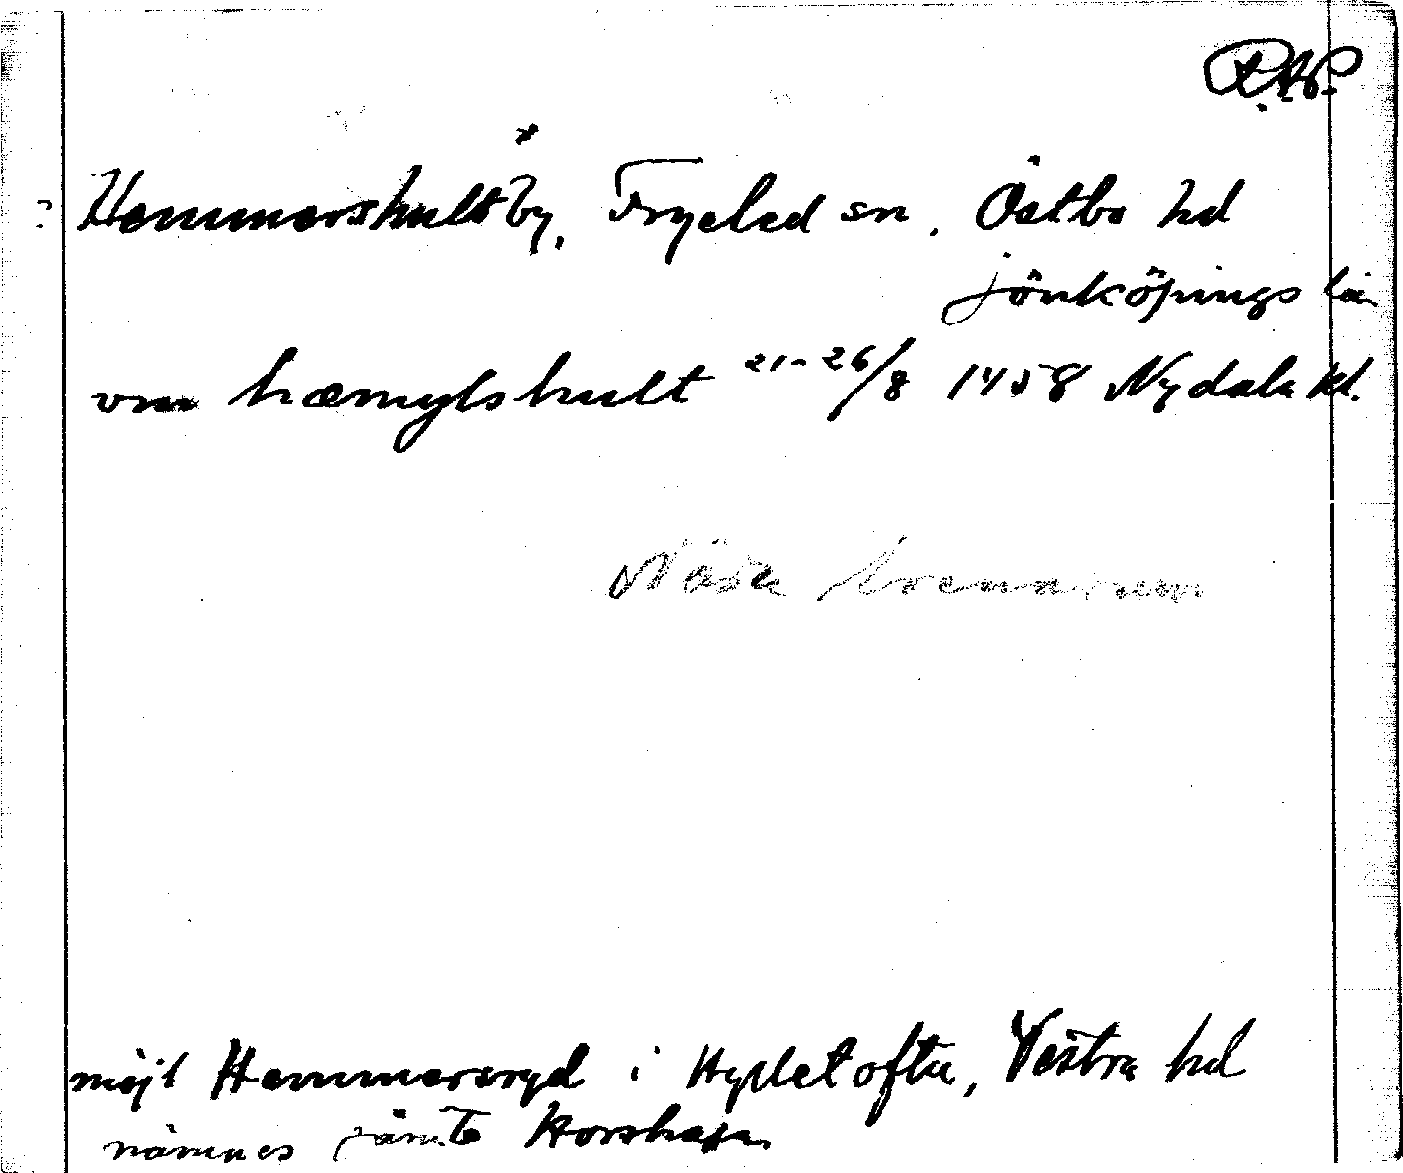 RAP.
*
? Hammarshult by, Fryeled sn. Östbo hd
Jönköpings län
vm hæmylshult 21-26/8 1458 Nydala kl.
Näsu
möjl Hammarsryd i Hyltetofta, Västra hd
nämnes jämte Korshaga